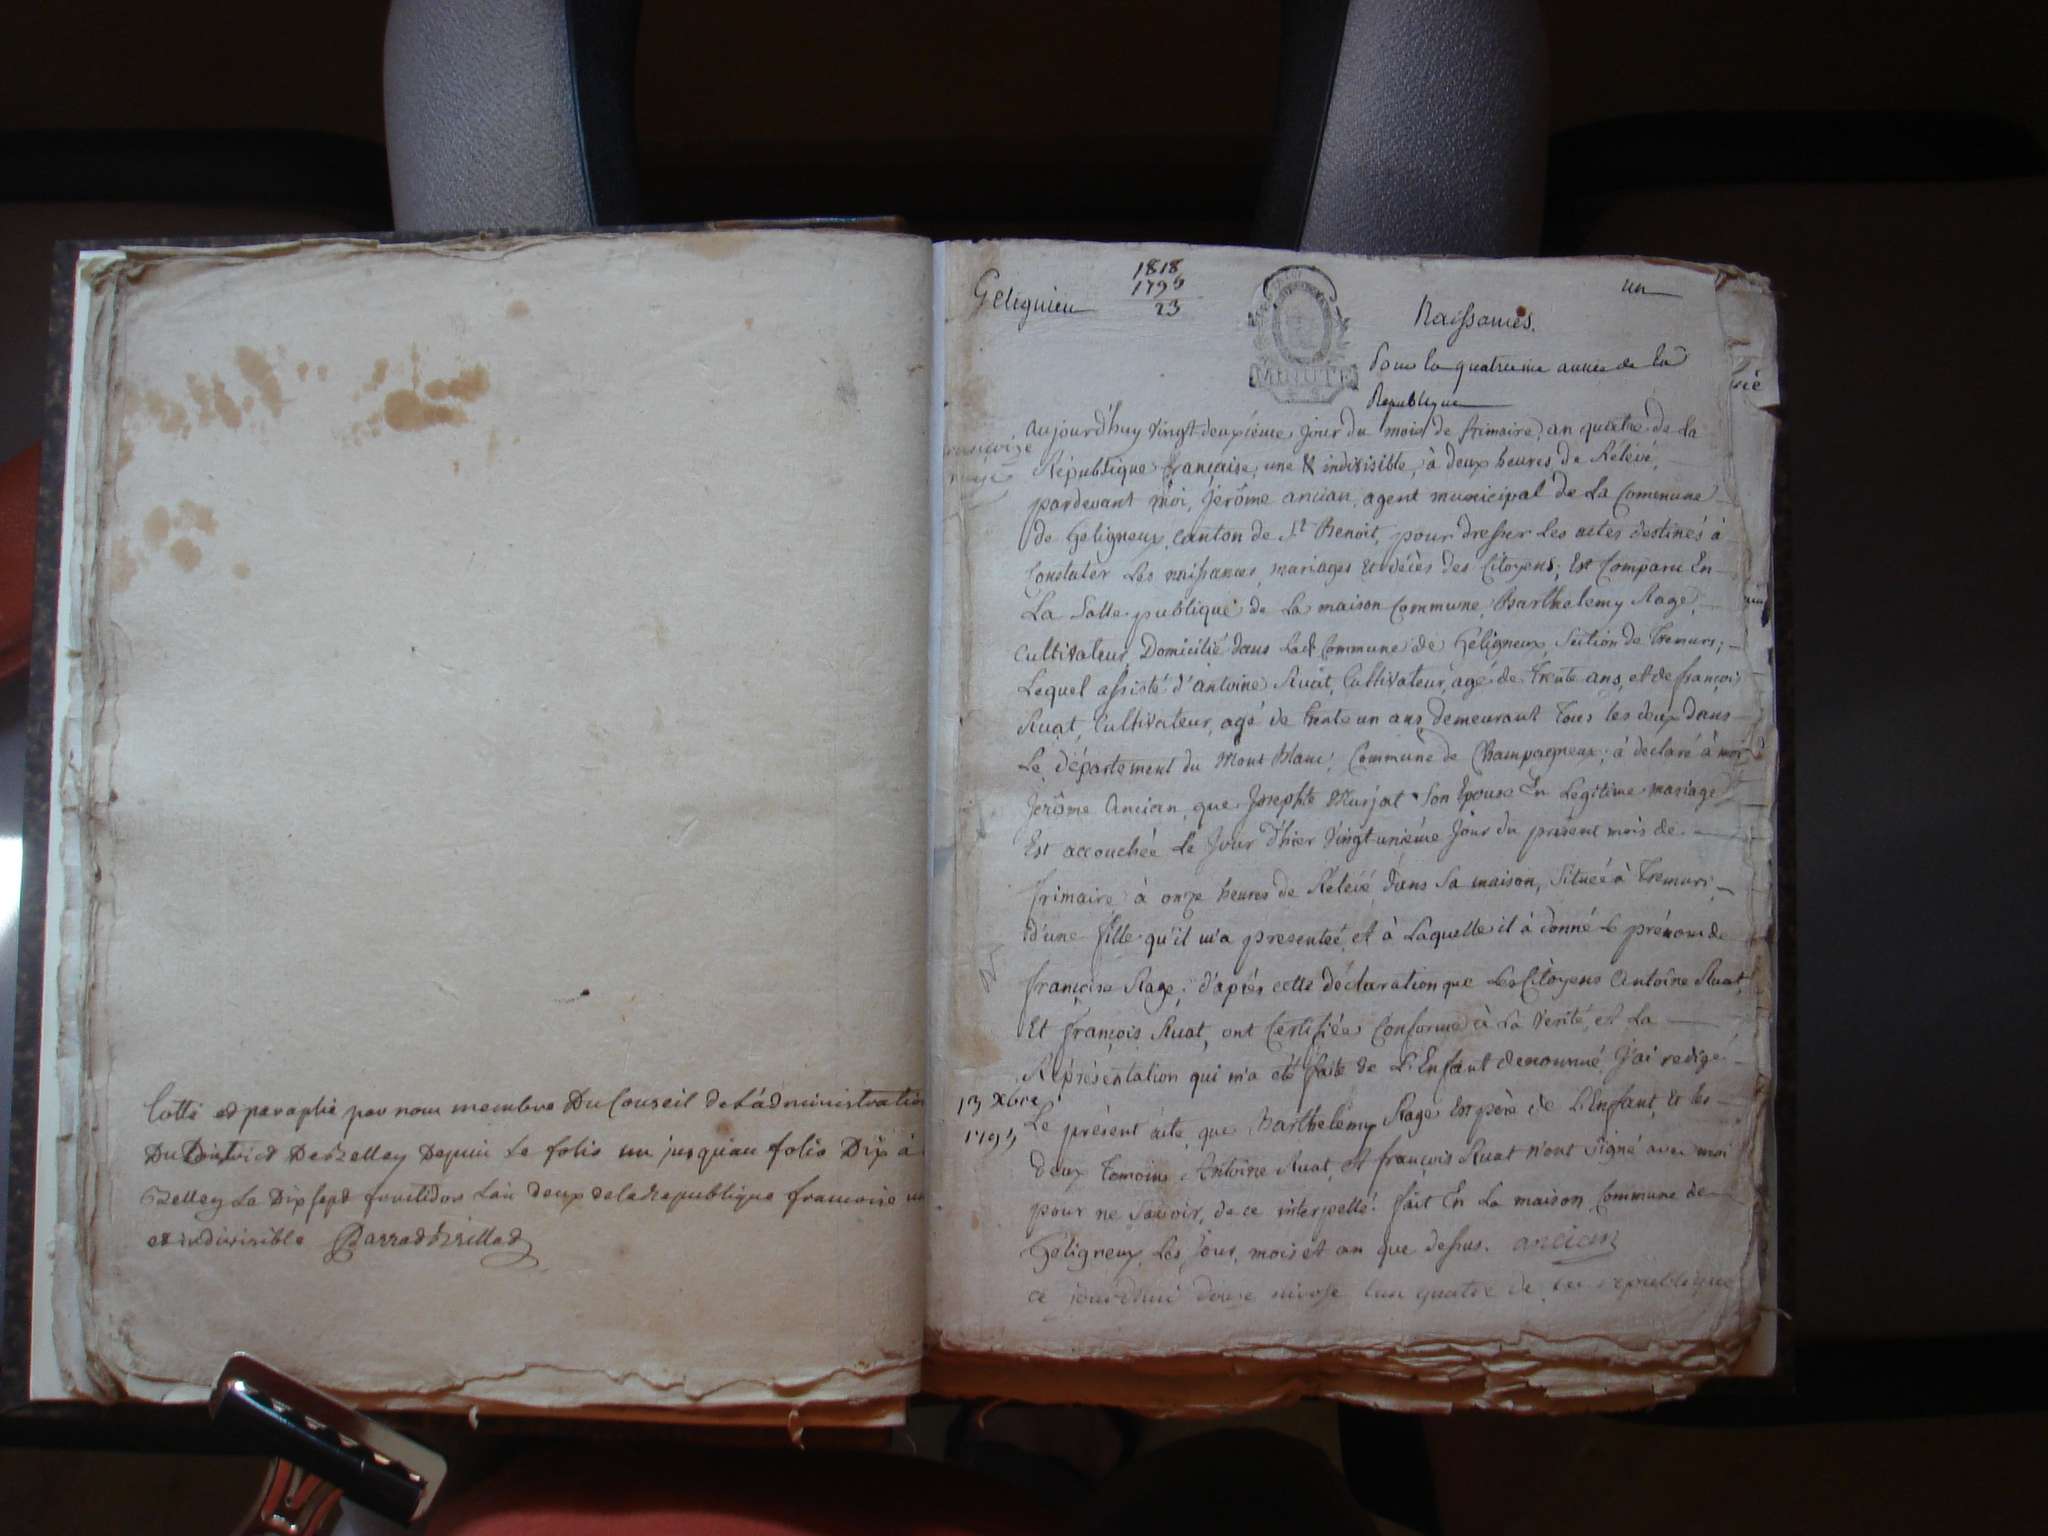 Cotté et paraphé par nous membre Du Conseil de L'administration
Du District De Belley Depuis Le folio un jusquau folio Dix à
Belley Le Dix sept fructidor L'an deux de la Republique francoise un
et indivisible
Gelignieu
1818
1795
23
MINUTE
un
Naissances.
Pour la quatrieme année de la
Republique
françoise
Rage
aujourd'huy vingt deuxiéme jour du mois de frimaire, an quatre de La
République française, une & indivisible, à deux heures de Rélévé,
pardevant moi, Jerôme ancian, agent municipal de La Commune
de Geligneux, Canton de St Benoit, pour dresser Les actes destinés à
Constater Les naissances, mariages et décès des Citoyens; Est Comparu En
La Salle publique de La maison Commune, Barthelemy Rage,
Cultivateur, Domicilié dans Lad. Commune de Geligneux, Section de Tremurs;
Lequel assisté d'antoine Ruat, Cultivateur, agé de Trente ans, et de françois
Ruat, Cultivateur, agé de trente un ans, demeurant Tous les deux dans
Le département du Mont Blanc, Commune de Champagneux; à déclaré à moi
Jerôme Ancian, que Josephte Murjat Son Epouse En Legitime mariage
Est accouchée Le Jour d'hier vingt-uniéme Jour du présent mois de
frimaire à onze heures de Rélévé dans Sa maison, Située à Tremurs
d'une fille qu'il m'a presenteé, et à Laquelle il à donné Le prénom de
françoise Rage; d'après cette déclaration que Les Citoyens Antoine Ruat,
Et françois Ruat, ont Certifiée Conforme à La Verité, et La
Réprésentation qui m'a été faite de L'Enfant denommé, J'ai redigé
13 Xbre
1795
Le présent acte, que Barthelemy Rage Est père de L'Enfant, et les
deux Temoins Antoine Ruat, et françois Ruat n'ont Signé avec moi
pour ne Savoir, de ce interpellé. fait En La maison Commune de
Géligneux, Les Jour, mois et an que dessus. ancian
ce jourdhui douze nivose lan quatre de la republique